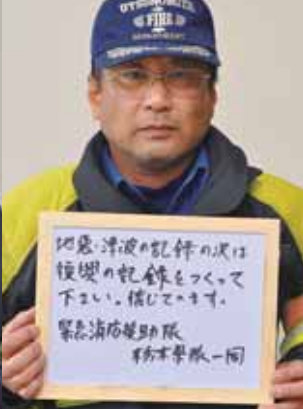 UTSUNOMIYA
FIRE
DEPARTMENT
地震・津波の記録の次は
復興の記録をつくって
下さい。信じてます。
緊急消防援助隊
栃木県隊一同